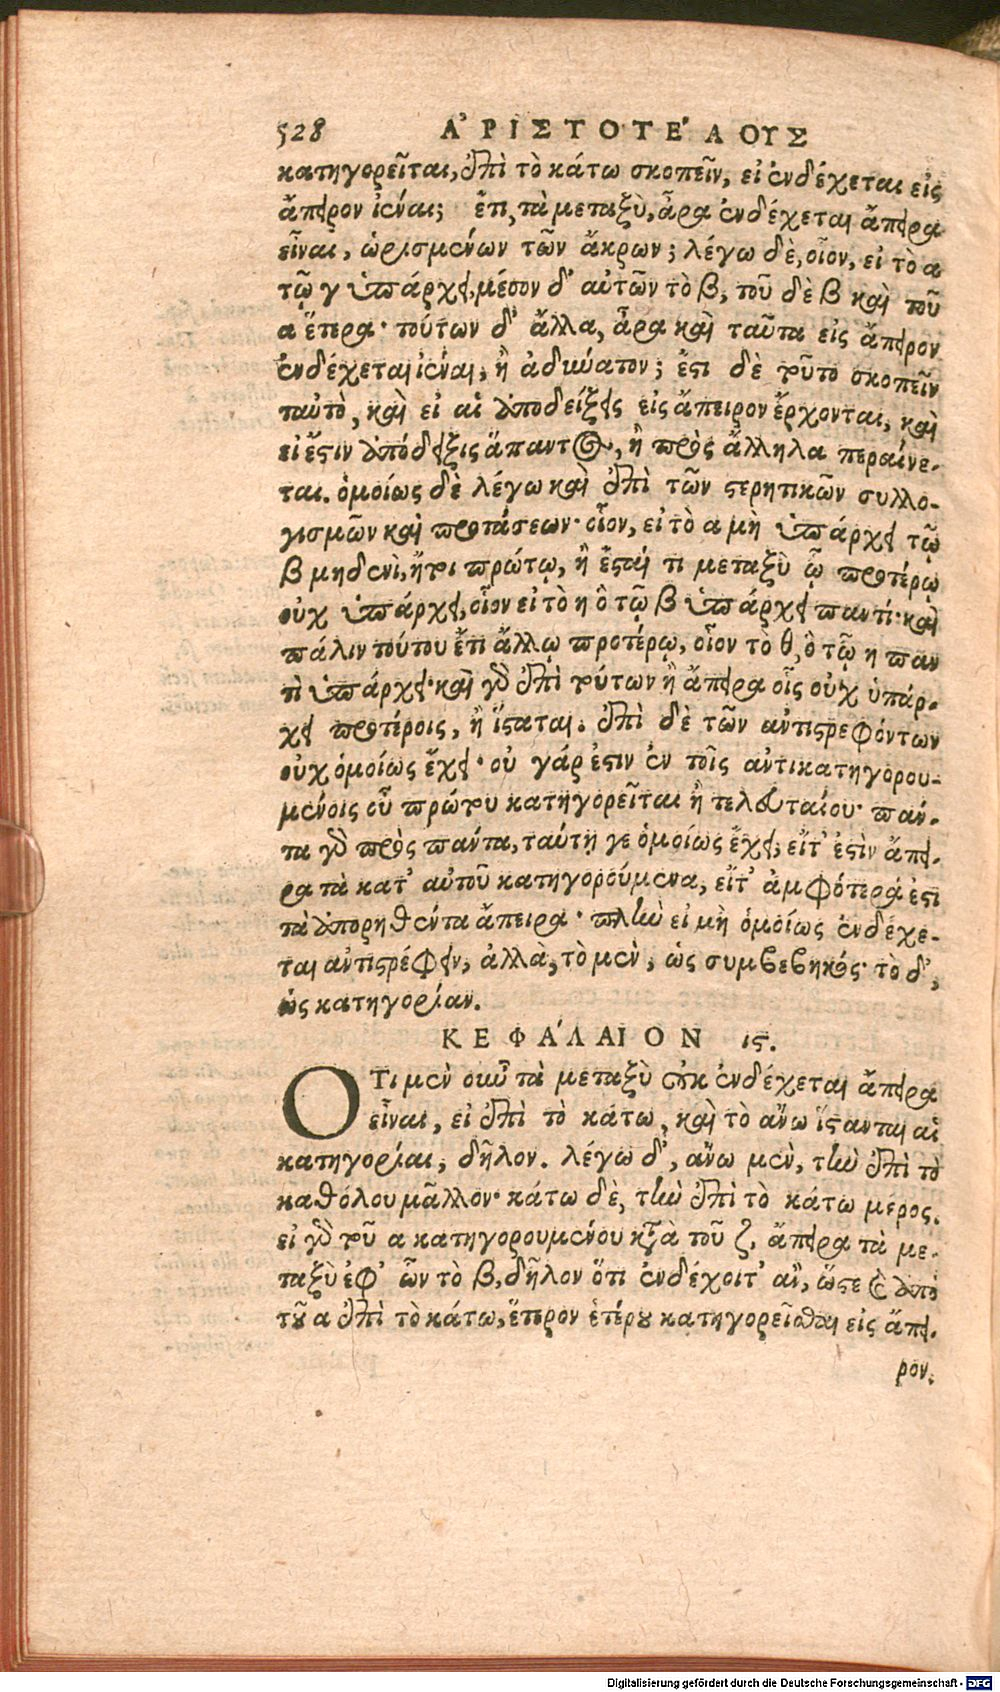 528 ΑΡΙΣΤΟΤΕΛΟΥΣ
κατηγορεῖται, ἐπὶ τὸ κάτω σκοπεῖν, εἰ ἐνδέχεται εἰς
ἄπειρον ἰέναι; ἔτι, τὰ μεταξὺ, ἆρα ἐνδέχεται ἄπειρα
εἶναι, ὡρισμένων τῶν ἄκρων; λέγω δὲ, οἷον, εἰ τὸ α
τῷ γ ὑπάρχει, μέσον δ' αὐτῶν τὸ β, τοῦ δὲ β καὶ τοῦ
α ἕτερα· τούτων δ' ἄλλα, ἆρα καὶ ταῦτα εἰς ἄπειρον
ἐνδέχεται ἰέναι, ἢ ἀδύνατον; ἔστι δὲ τοῦτο σκοπεῖν
ταὐτὸ, καὶ εἰ αἱ ἀποδείξεις εἰς ἄπειρον ἔρχονται, καὶ
εἰ ἔστιν ἀπόδειξις ἅπαντος, ἢ πρὸς ἄλληλα περαίνε-
ται. ὁμοίως δὲ λέγω καὶ ἐπὶ τῶν στερητικῶν συλλο-
γισμῶν καὶ προτάσεων· οἷον, εἰ τὸ α μὴ ὑπάρχει τῷ
β μηδενὶ, ἤτοι πρώτῳ, ἢ ἔσται τι μεταξὺ ᾧ προτέρῳ
οὐχ ὑπάρχει, οἷον εἰ τὸ η ὃ τῷ β ὑπάρχει παντί· καὶ
πάλιν τούτου ἔτι ἄλλῳ προτέρῳ, οἷον τὸ θ, ὃ τῷ η παν
τὶ ὑπάρχει· καὶ γὸ ἐπὶ τούτων ἢ ἄπειρα οἷς οὐχ ὑπάρ-
χει προτέροις, ἢ ἵσταται. ἐπὶ δὲ τῶν ἀντιστρεφόντων
οὐχ ὁμοίως ἔχει· οὐ γάρ ἐστιν ἐν τοῖς ἀντικατηγορου-
μένοις οὗ πρώτου κατηγορεῖται ἢ τελευταίου· πάν-
τα γὰρ πρὸς πάντα, ταύτῃ γε ὁμοίως ἔχει, εἴτ' ἐστὶν ἄπει-
ρα τὰ κατ' αὐτοῦ κατηγορούμενα, εἴτ' ἀμφότερά ἐστι
τὰ ἀπορηθέντα ἄπειρα· πλὴν εἰ μὴ ὁμοίως ἐνδέχε-
ται ἀντιστρέφειν, ἀλλὰ, τὸ μὲν, ὡς συμβεβηκός· τὸ δ',
ὡς κατηγορίαν.
ΚΕΦΑΛΑΙΟΝ ιϛ.
ΟΤι μὲν οὖν τὰ μεταξὺ οὐκ ἐνδέχεται ἄπειρα
εἶναι, εἰ ἐπὶ τὸ κάτω, καὶ τὸ ἄνω ἵστανται αἱ
κατηγορίαι, δῆλον. λέγω δ', ἄνω μὲν, τὴν ἐπὶ τὸ
καθόλου μᾶλλον· κάτω δὲ, τὴν ἐπὶ τὸ κάτω μέρος.
εἰ γὰρ τοῦ α κατηγορουμένου κατὰ τοῦ ζ, ἄπειρα τὰ με-
ταξὺ ἐφ' ὧν τὸ β, δῆλον ὅτι ἐνδέχοιτ' ἂν, ὥστε καὶ ἀπὸ
τοῦ α ἐπὶ τὸ κάτω, ἕτερον ἑτέρου κατηγορεῖσθαι εἰς ἄπει-
ρον.
Digitalisierung gefördert durch die Deutsche Forschungsgemeinschaft - DFG